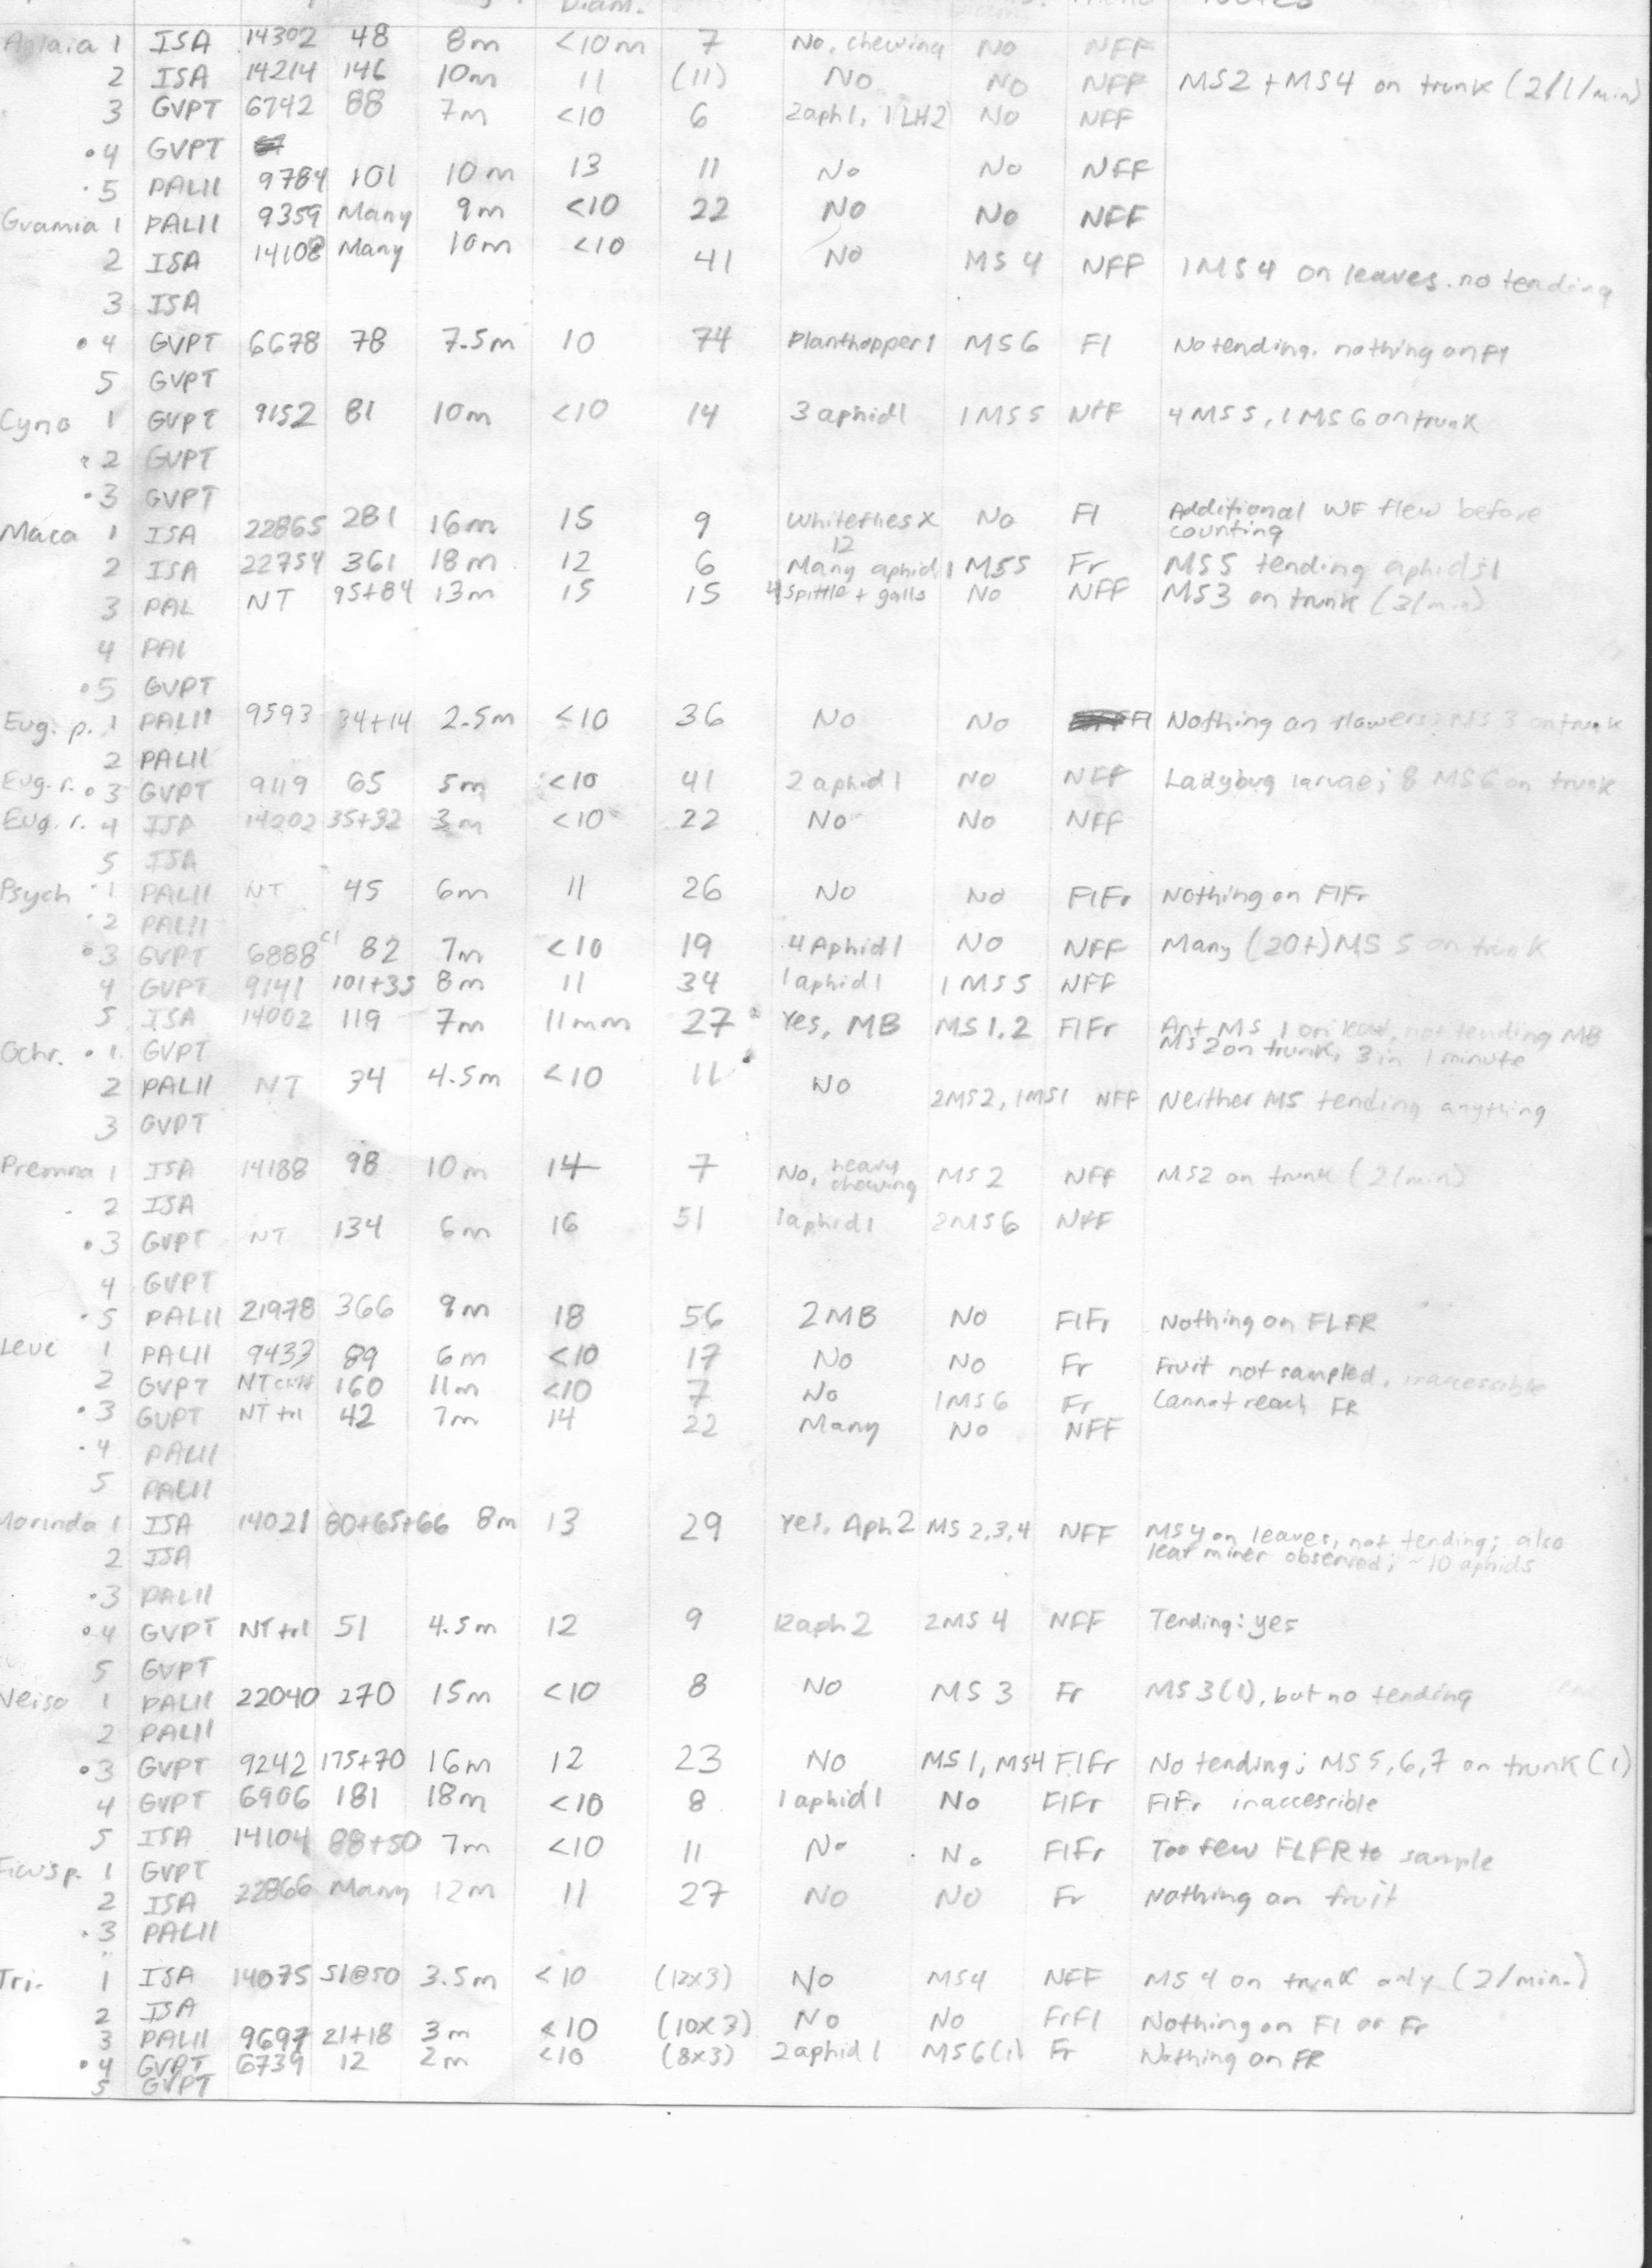 Diam. Notes
Aglaia 1 ISA 14302 48 8m <10m 7 No, chewing No NFF
2 ISA 14214 146 10m 11 (11) No No NFF MS2 + MS4 on trunk (2/1/min)
3 GVPT 6742 88 7m <10 6 2aph1, 1 LH2 No NFF
•4 GVPT
•5 PALII 9784 101 10m 13 11 No No NFF
Guamia 1 PALII 9359 Many 9m <10 22 No No NFF
2 ISA 14108 Many 10m <10 41 No MS 4 NFF 1 MS 4 on leaves. no tending
3 ISA
•4 GVPT 6678 78 7.5m 10 74 Planthopper 1 MS6 Fl No tending. nothing on Fl
5 GVPT
Cyno 1 GVPT 9152 81 10m <10 14 3 aphid1 1 MS5 NFF 4 MS 5, 1 MS 6 on trunk
•2 GVPT
•3 GVPT
Maca 1 ISA 22865 281 16m 15 9 Whiteflies X 12 No Fl Additional WF flew before
counting
2 ISA 22754 361 18m 12 6 Many aphid 1 MS5 Fr MS5 tending aphids1
3 PAL NT 95+84 13m 15 15 4 Spittle + galls No NFF MS3 on trunk (3/min)
4 PAL
•5 GVPT
Eug. p. 1 PALII 9593 34+14 2.5m <10 36 No No Fl Nothing on flowers; MS 3 on trunk
2 PALII
Eug. r. •3 GVPT 9119 65 5m <10 41 2 aphid 1 No NFF Ladybug larvae; 8 MS6 on trunk
Eug. r. 4 ISA 14202 35+32 3m <10 22 No No NFF
5 ISA
Psych •1 PALII NT 45 6m 11 26 No No FlFr Nothing on FlFr
•2 PALII
•3 GVPT 6888 82 7m <10 19 4 Aphid 1 No NFF Many (20+) MS 5 on trunk
4 GVPT 9141 101+35 8m 11 34 1 aphid 1 1 MS5 NFF
5 ISA 14002 119 7m 11mm 27 Yes, MB MS 1,2 FlFr Ant MS 1 on leaf, not tending MB
MS 2 on trunk, 3 in 1 minute
Ochr. •1 GVPT
2 PALII NT 34 4.5m <10 11 No 2MS2, 1MS1 NFF Neither MS tending anything
3 GVPT
Premna 1 ISA 14188 98 10m 14 7 No, heavy chewing MS 2 NFF MS2 on trunk (2/min)
2 ISA
•3 GVPT NT 134 6m 16 51 1aphid1 2MS6 NFF
4 GVPT
•5 PALII 21978 366 9m 18 56 2MB No FlFr Nothing on FLFR
Leuc 1 PALII 9433 89 6m <10 17 No No Fr Fruit not sampled, inaccessible
2 GVPT NT 160 11m <10 7 No 1MS6 Fr Cannot reach FR
•3 GVPT NT trl 42 7m 14 22 Many No NFF
•4 PALII
5 PALII
Morinda 1 ISA 14021 80+65+66 8m 13 29 Yes, Aph 2 MS 2,3,4 NFF MS4 on leaves, not tending; also
leaf miner observed; ~10 aphids
2 ISA
•3 PALII
•4 GVPT NT trl 51 4.5m 12 9 12aph2 2MS 4 NFF Tending: yes
5 GVPT
Neiso 1 PALII 22040 270 15m <10 8 No MS 3 Fr MS 3(1), but no tending
2 PALII
•3 GVPT 9242 175+70 16m 12 23 No MS1, MS4 FlFr No tending; MS 5,6,7 on trunk (1)
4 GVPT 6906 181 18m <10 8 1aphid1 No FlFr FlFr inaccessible
5 ISA 14104 88+50 7m <10 11 No No FlFr Too few FLFR to sample
Ficus p. 1 GVPT
2 ISA 22866 Many 12m 11 27 No No Fr Nothing on fruit
•3 PALII
Tri. 1 ISA 14075 51@50 3.5m <10 (12x3) No MS4 NFF MS 4 on trunk only (2/min.)
2 ISA
3 PALII 9697 21+18 3m <10 (10x3) No No FrFl Nothing on Fl or Fr
•4 GVPT 6739 12 2m <10 (8x3) 2aphid 1 MS6(1) Fr Nothing on FR
5 GVPT